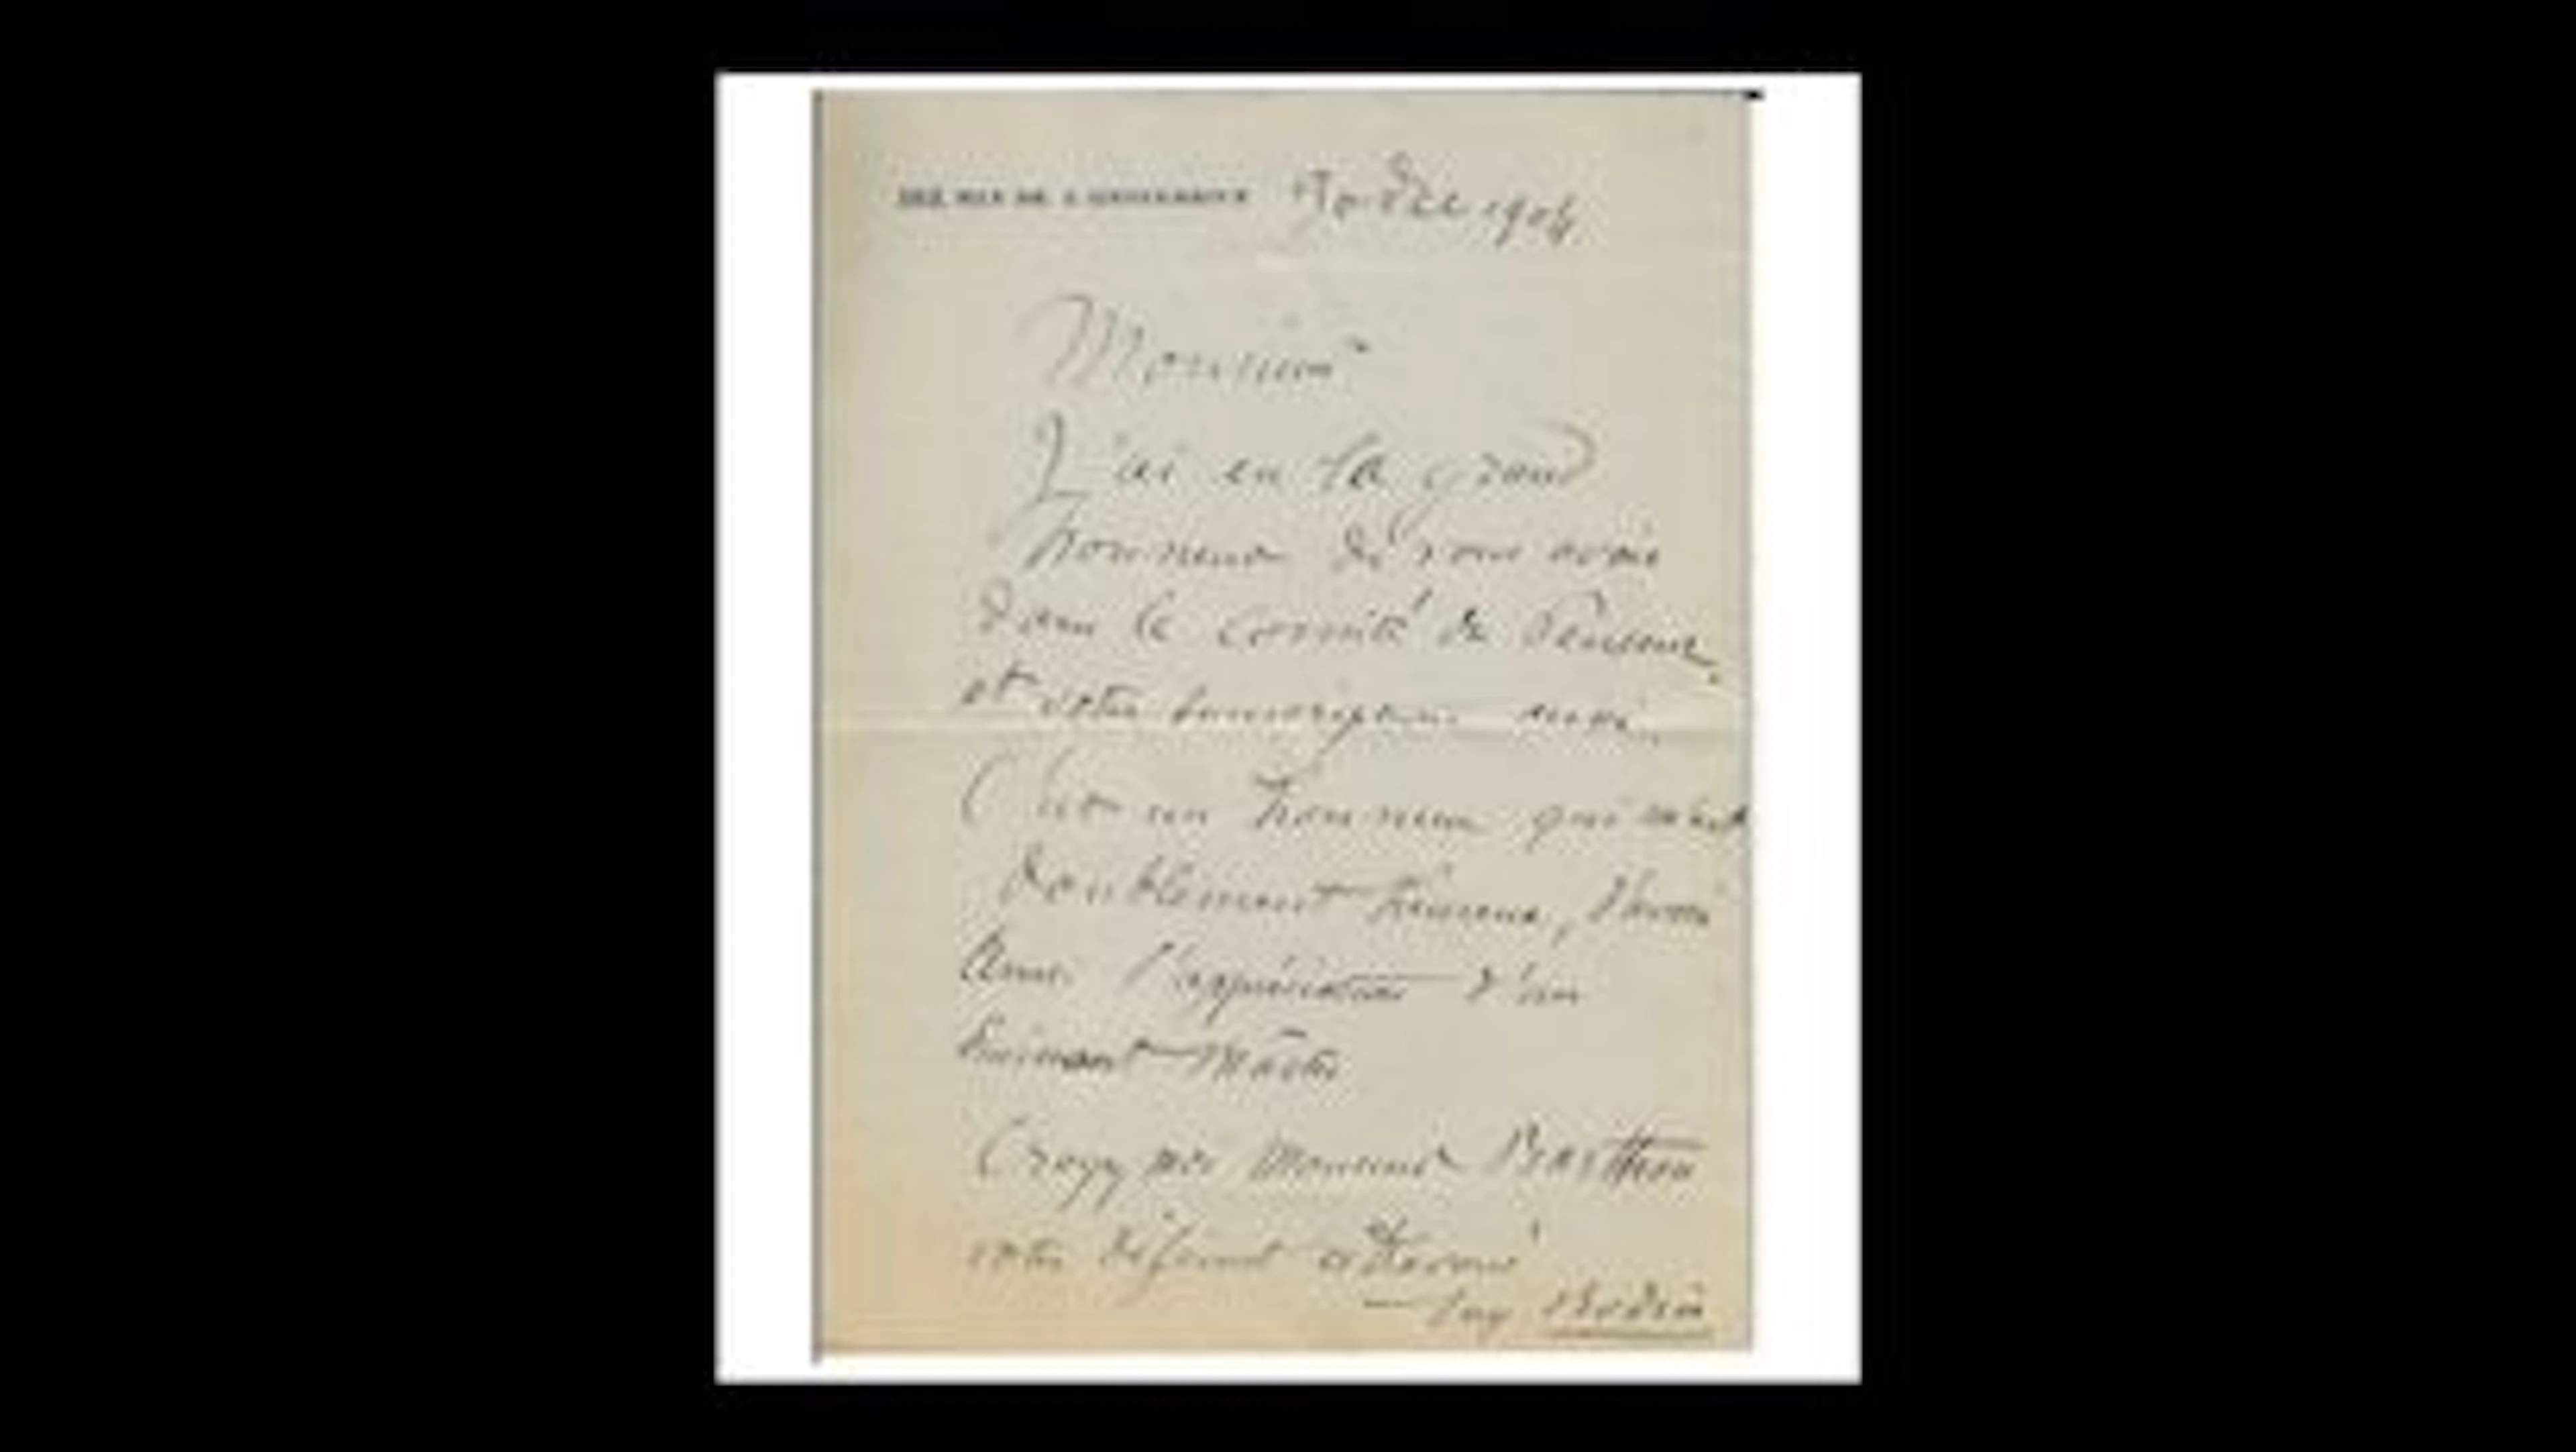 182, RUE DE L'UNIVERSITÉ Dec 1904
Monsieur
J'ai eu le grand
honneur de vous avoir
dans le comité du Penseur,
et votre souscription aussi.
C'est un honneur qui m'est
doublement heureux, d'avoir
ainsi l'appréciation d'un
Eminent Maître
Croyez moi Monsieur Barthou
votre déférent et dévoué
Aug Rodin